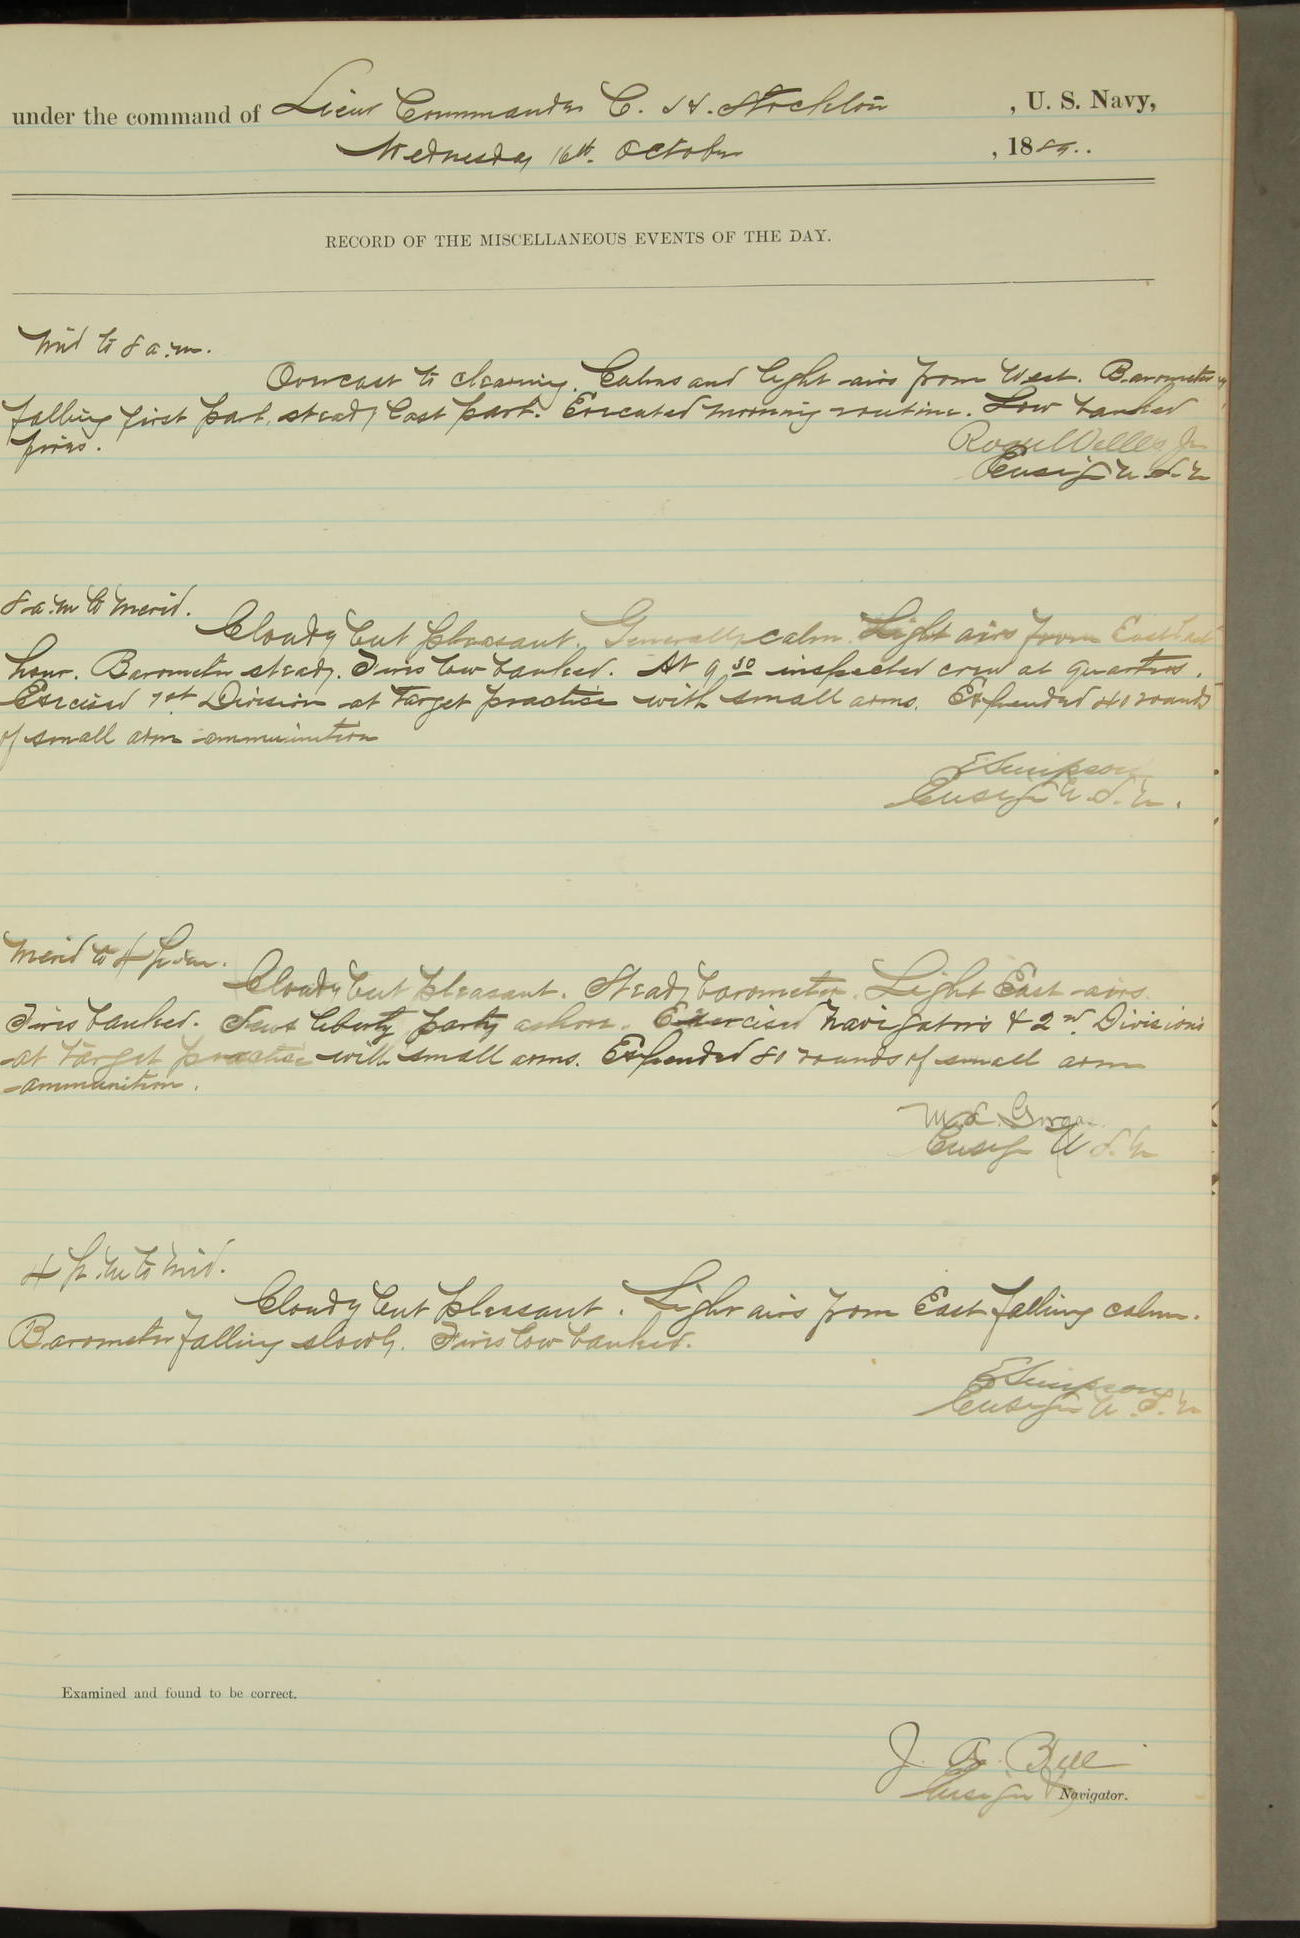 under the command of Lieut Commander C. H. Stockton, U. S. Navy,
Wednesday 16th. October, 1889..
RECORD OF THE MISCELLANEOUS EVENTS OF THE DAY.
Mid to 8 a.m.
Overcast to clearing. Calms and light airs from West. Barometer
falling first part, steady last part. Executed morning routine. Low banked
fires.
Roger Welles Jr
Ensign U.S.N
8 a.m to Merid.
Cloudy but pleasant. Generally calm. Light airs from East last
hour. Barometer steady. Fires low banked. At 9 30 inspected crew at quarters.
Exercised 1st Division at target practice with small arms. Expended 40 rounds
of small arm ammunition
E Simpson
Ensign U.S.N.
Merid to 4 p.m.
Cloudy but pleasant. Steady barometer. Light East airs.
Fires banked. Sent liberty party ashore. Exercised Navigator's & 2nd. Divisions
at target practice with small arms. Expended 80 rounds of small arm
ammunition.
M. L.
Ensign U.S.N
4 p.m to Mid.
Cloudy but pleasant. Light airs from East falling calm.
Barometer falling slowly. Fires low banked.
E Simpson
Ensign U.S.N
Examined and found to be correct.
J. A. Bell
Ensign & Navigator.